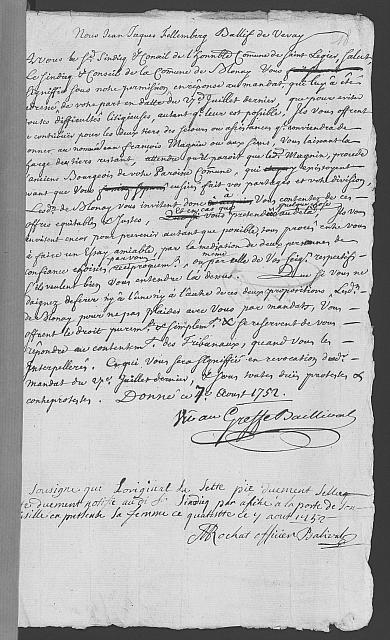 Nous Jean Jaques Fellemberg Ballif de Vevay
A vous le Sr. Sindiq & Conseil de l'honnble Comune de Saint Legier, Salut
Le Sindiq & Conseil de la Comune de Blonay Vous
signiffie sous notre permission en reponse au mandat, que luy a été
adressé de votre part en datte du 27e Juillet dernier, que pour evité
toutes difficultés litigieuses, autant qu'il leur est possible, Ils Vous offrent
de continuer pour les deux tiers des secours ou assistances qu'il conviendra de
donner au nommé Jean François Magnin ou aux siens, Vous laissant la
charge du tiers restant, attendu qu'il paroit que led. Magnin, procede
d'anciens Bourgeois de votre Paroisse Comune, qui existoyent
avant que Vous eussiez fait vos partages et votre division,
Lesd. de Blonay vous invitent donc Vous contenter de ces
offres equitables & justes, et en cas que vous pretendiez au dela Ils vous
invitent encor pour prevenir autant que possible, tous procès entre vous
à faire un Essay amiable par la mediation de deux personnes de
confiance choisies par vous reciproquement, ou même par celle de Vos Seigrs respectifs
s'ils veulent bien Vous entendre la dessus. Que si Vous ne
daignez deferer ny à l'une ny à l'autre de ces deux propositions Lesd.
de Blonay, pour ne pas plaider avec Vous par mandats, Vous
offrent le droit purement & simplement & se reservent de vous
repondre au contentement des Tribunaux, quand Vous les
Interpellerés. Ce qui Vous sera signiffié en revocation dud.
mandat du 27e Juillet dernier, & sous toutes dües protestes &
contreprotestes. Donné ce 7e Aout 1752.
Greffe Baillival
Sousigne que l'original du sette pie duement Sellee
duement notifie au dit Sr Sindiq par afiche à la porte de son
en presente sa femme ce 7 aout 1752
Rochat officier Balival